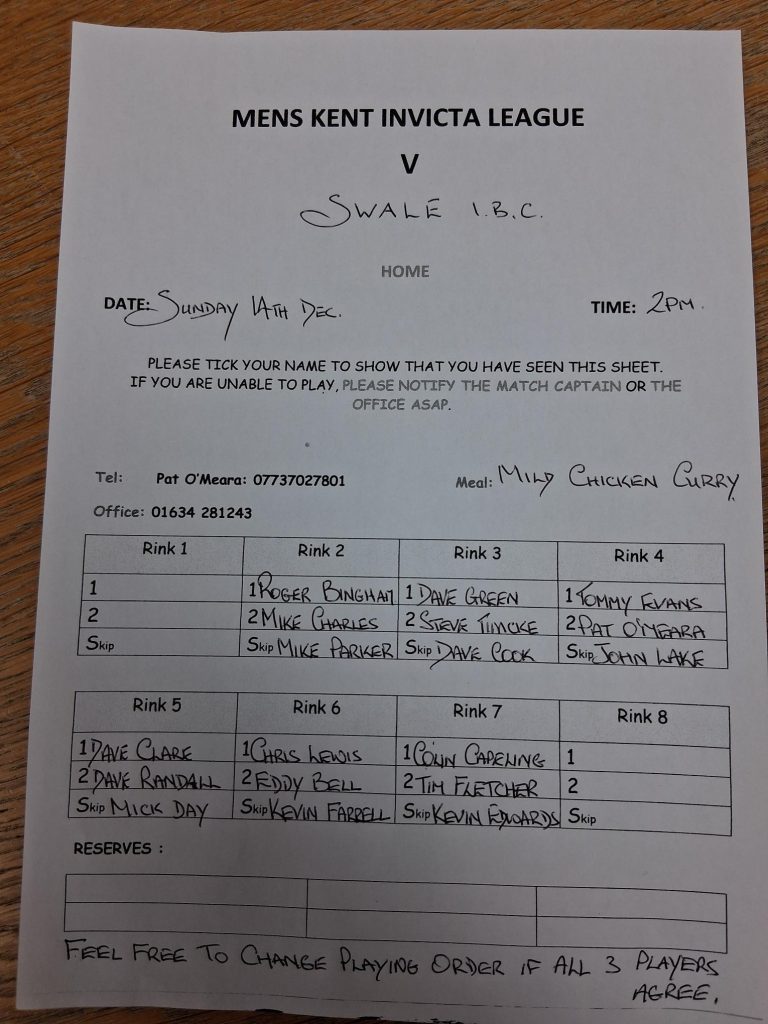 MENS KENT INVICTA LEAGUE
V
SWALE I.B.C.
HOME
DATE: SUNDAY 14TH DEC. TIME: 2PM.
PLEASE TICK YOUR NAME TO SHOW THAT YOU HAVE SEEN THIS SHEET.
IF YOU ARE UNABLE TO PLAY, PLEASE NOTIFY THE MATCH CAPTAIN OR THE
OFFICE ASAP.
Tel: Pat O'Meara: 07737027801 Meal: MILD CHICKEN CURRY
Office: 01634 281243
Rink 1 Rink 2 Rink 3 Rink 4
1 1 ROGER BINGHAM 1 DAVE GREEN 1 TOMMY EVANS
2 2 MIKE CHARLES 2 STEVE TIMCKE 2 PAT O'MEARA
Skip Skip MIKE PARKER Skip DAVE COOK Skip JOHN LAKE
Rink 5 Rink 6 Rink 7 Rink 8
1 DAVE CLARE 1 CHRIS LEWIS 1 COLIN CAPELING 1
2 DAVE RANDALL 2 EDDY BELL 2 TIM FLETCHER 2
Skip MICK DAY Skip KEVIN FARRELL Skip KEVIN EDWARDS Skip
RESERVES :
FEEL FREE TO CHANGE PLAYING ORDER IF ALL 3 PLAYERS
AGREE.